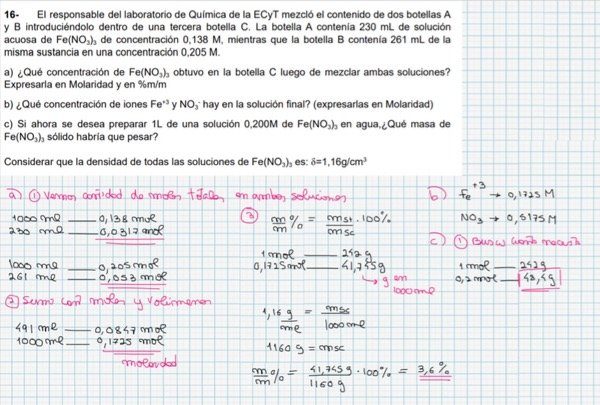 16- El responsable del laboratorio de Química de la ECyT mezcló el contenido de dos botellas A
y B introduciéndolo dentro de una tercera botella C. La botella A contenía 230 mL de solución
acuosa de Fe(NO₃)₃ de concentración 0,138 M, mientras que la botella B contenía 261 mL de la
misma sustancia en una concentración 0,205 M.
a) ¿Qué concentración de Fe(NO₃)₃ obtuvo en la botella C luego de mezclar ambas soluciones?
Expresarla en Molaridad y en %m/m
b) ¿Qué concentración de iones Fe⁺³ y NO₃⁻ hay en la solución final? (expresarlas en Molaridad)
c) Si ahora se desea preparar 1L de una solución 0,200M de Fe(NO₃)₃ en agua,¿Qué masa de
Fe(NO₃)₃ sólido habría que pesar?
Considerar que la densidad de todas las soluciones de Fe(NO₃)₃ es: δ=1,16g/cm³
a) ① Vemos cantidad de moles totales en ambas soluciones
1000 ml — 0,138 mol
230 ml — 0,0317 mol
1000 ml — 0,205 mol
261 ml — 0,053 mol
② Sumo cant moles y volúmenes
491 ml — 0,0847 mol
1000 ml — 0,1725 mol
molaridad
③ m/m % = mst/msc · 100%
1 mol — 242 g
0,1725 mol — 41,745 g
→ g en
1000 ml
1,16 g/ml = msc/1000 ml
1160 g = msc
m/m % = 41,745 g/1160 g · 100% = 3,6 %
b) Fe⁺³ → 0,1725 M
NO₃ → 0,5175 M
c) ① Busco cuanto necesito
1 mol — 242g
0,2 mol — 48,4g